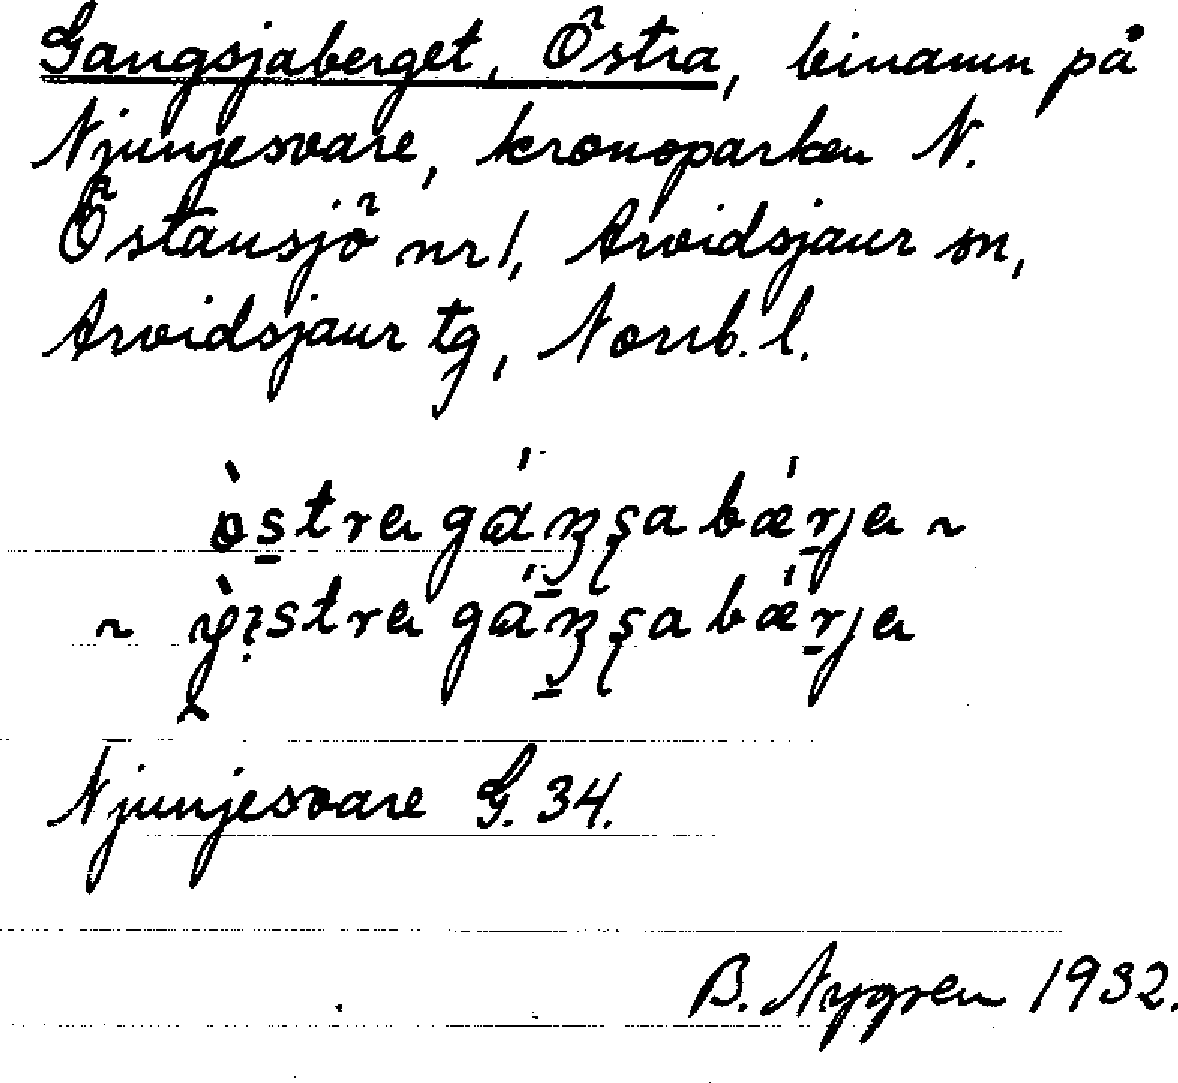 Gangsjaberget, Östra, binamn på
Njunjesvare, kronoparken N.
Östansjö nr 1, Arvidsjaur sn,
Arvidsjaur tg, Norrb. l.
ò̱stra gáŋsa bǽrja ~
~ỳstra gáŋsa bǽrja
Njunjesvare G. 34.
B. Nygren 1932.